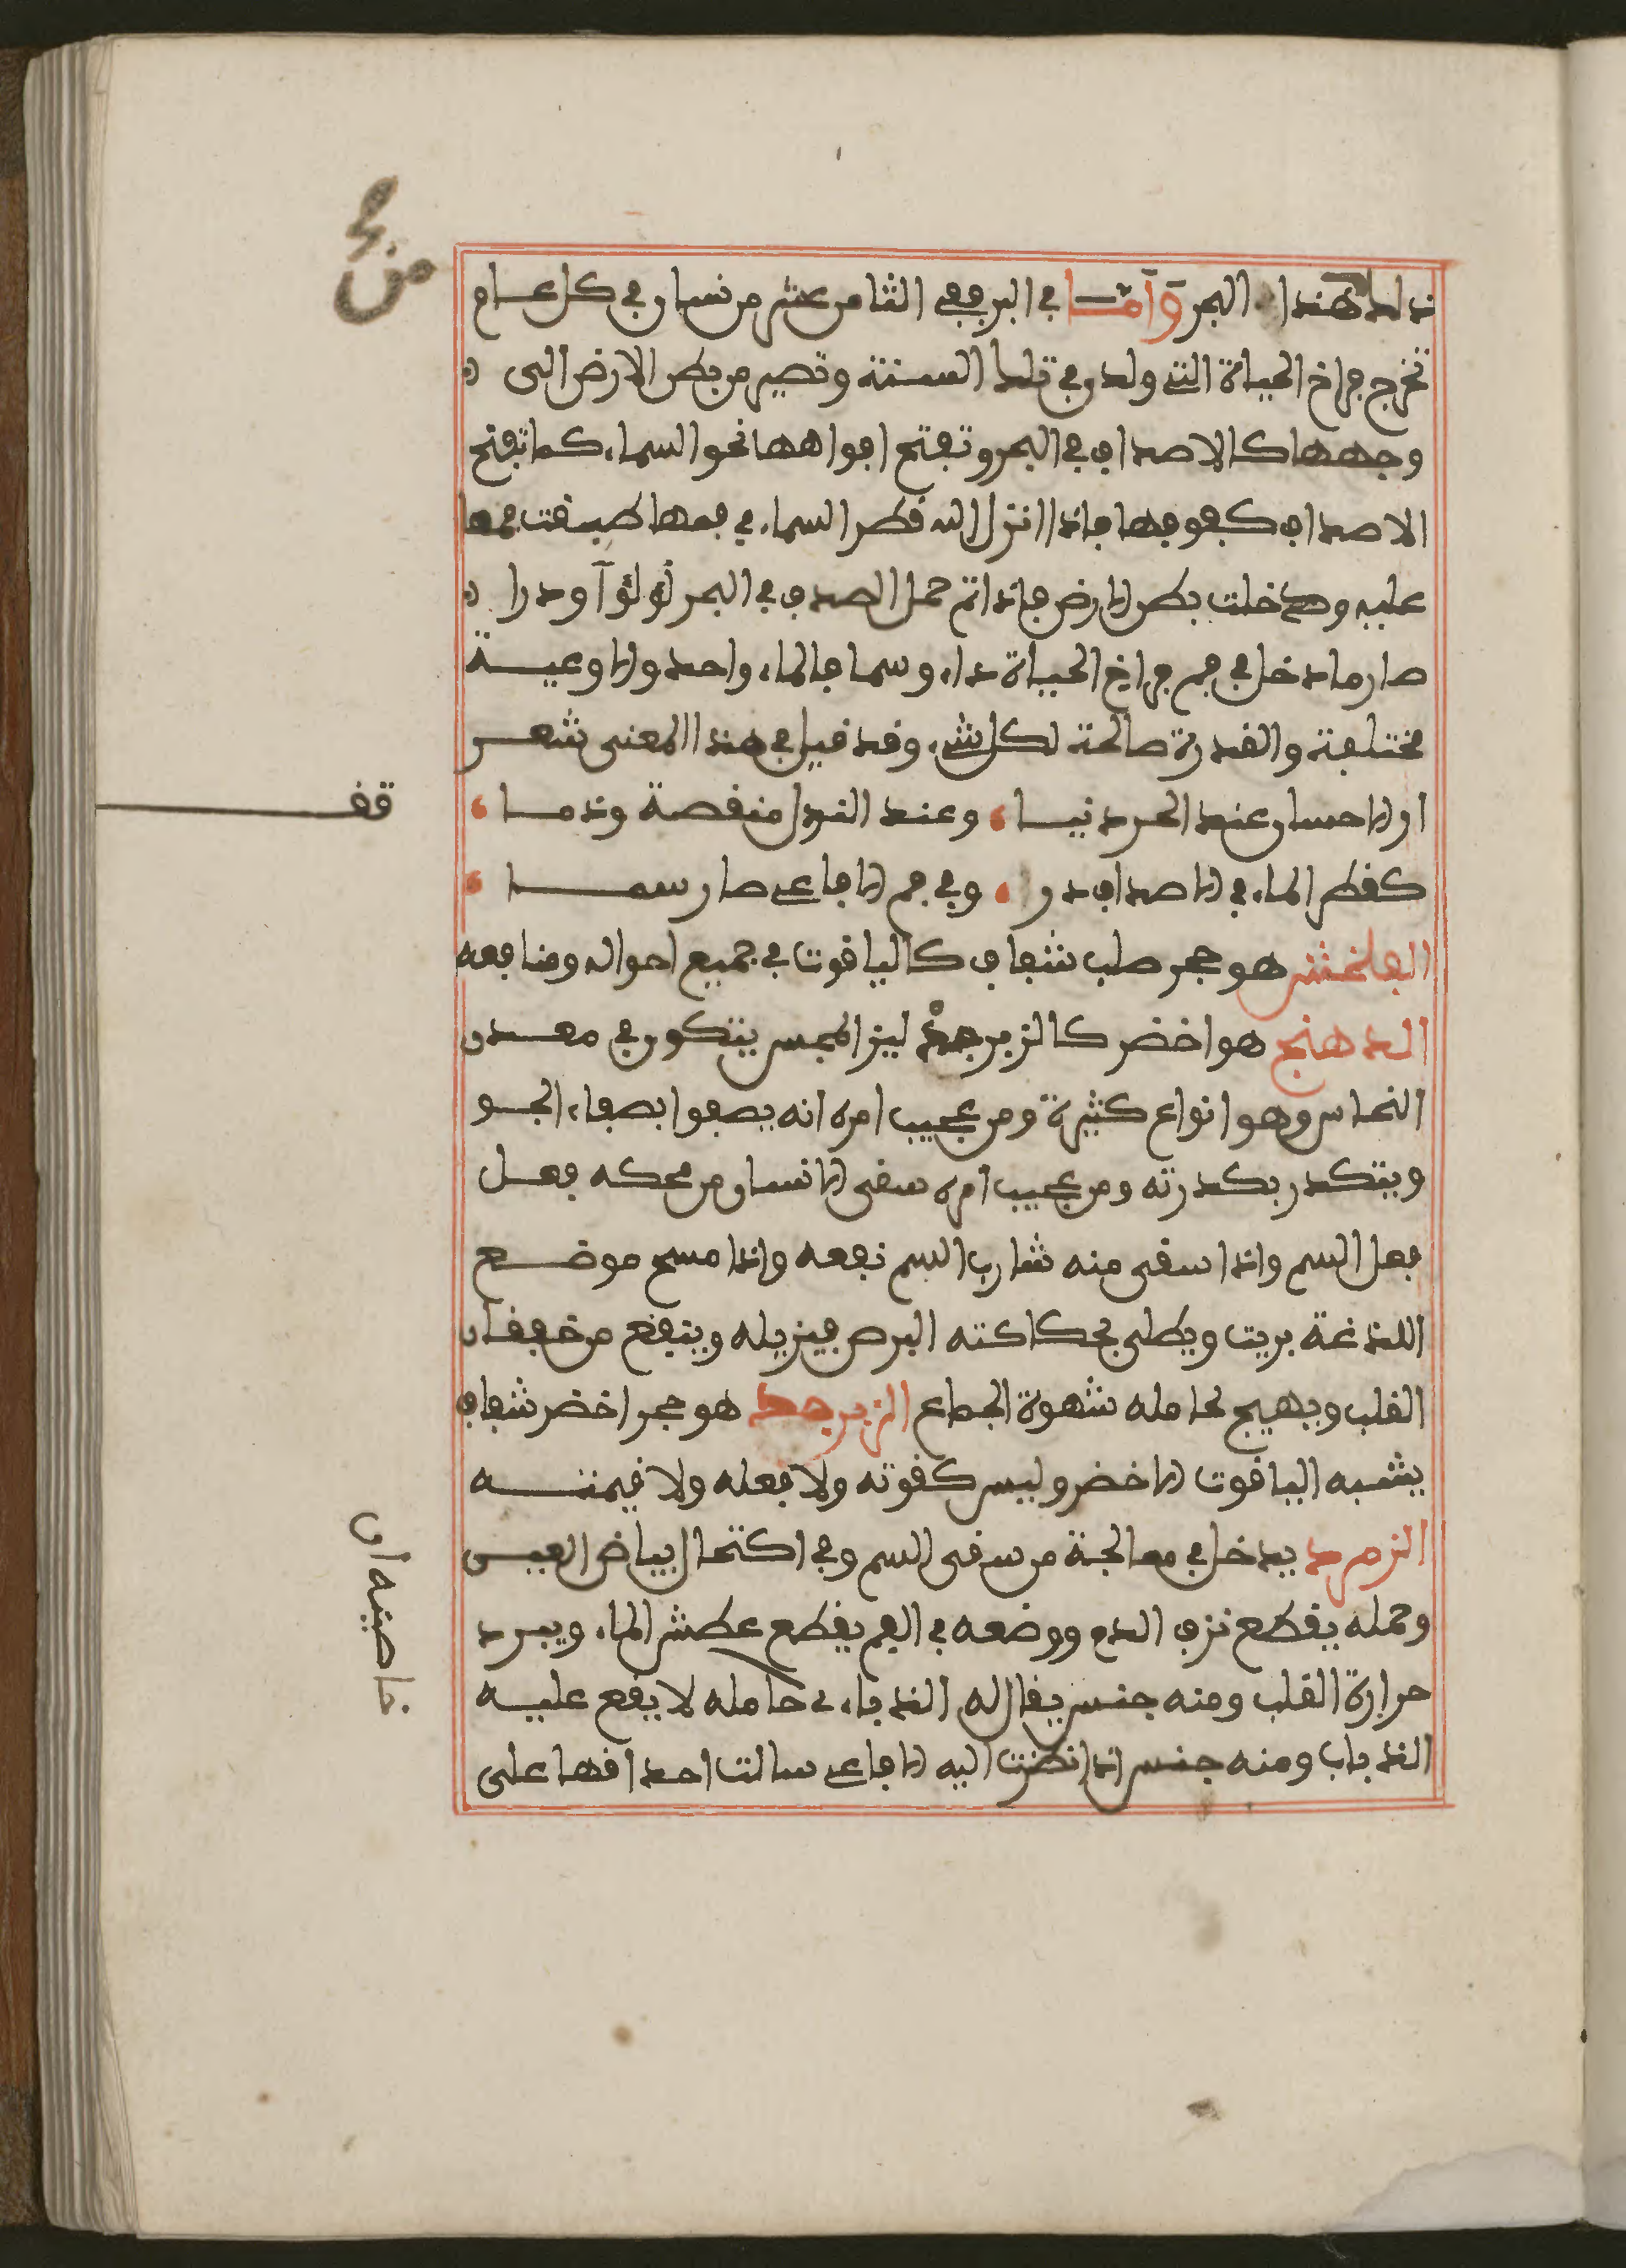 ذلك هذا البحر وأما في البر ففي الثامن عشر من نيسان في كل عام
تخرج فراخ الحياة التي ولدن في تلك السنة وتصير من بطن الارض الى
وجهها كالاصداف في البحر وتفتح افواهها نحو السماء كما تفتح
الاصداف كفوفها فاذا انزل الله قطر السماء في فمها طبقت فمها
عليه ودخلت بطن الارض فاذا تم حمل الصدف في البحر لؤلؤا ودرا
صار ما دخل في فم فراخ الحياة داء وسما فالماء واحد والاوعية
مختلفة والقدرة صالحة لكل شيء وقد قيل في هذا المعنى شعر
ار الاحسان عند الحر دينا وعند النذل منقصة وذما
كقطر الماء في الاصداف در وفي فم الافاعي صار سما
البلخش هو حجر صلب شفاف كالياقوت في جميع احواله ومنافعه
الدهنج هو اخضر كالزبرجد لين المجس يتكون في معدن
النحاس وهو انواع كثيرة ومن عجيب امره انه يصفوا بصفاء الجو
ويتكدر بكدرته ومن عجيب امره سقى الانسان من محكه فعل
فعل السم واذا سقى منه شارب السم نفعه واذا مسح موضع
اللذغة بريت ويطلى بحكاكته البرص فيزيله وينفع من خفقان
القلب ويهيج لحامله شهوة الجماع الزبرجد هو حجر اخضر شفاف
يشبه الياقوت الاخضر وليس كقوته ولا فعله ولا قيمته
الزمرد يدخل في معالجة من سقى السم وفي اكتحال بياض العين
وحمله يقطع نزف الدم ووضعه في الفم يقطع عطش الماء ويبرد
حرارة القلب ومنه جنس يقال له الذباب حامله لا يقع عليه
الذباب ومنه جنس اذا نظرت اليه الافاعي سالت احداقها على
قف